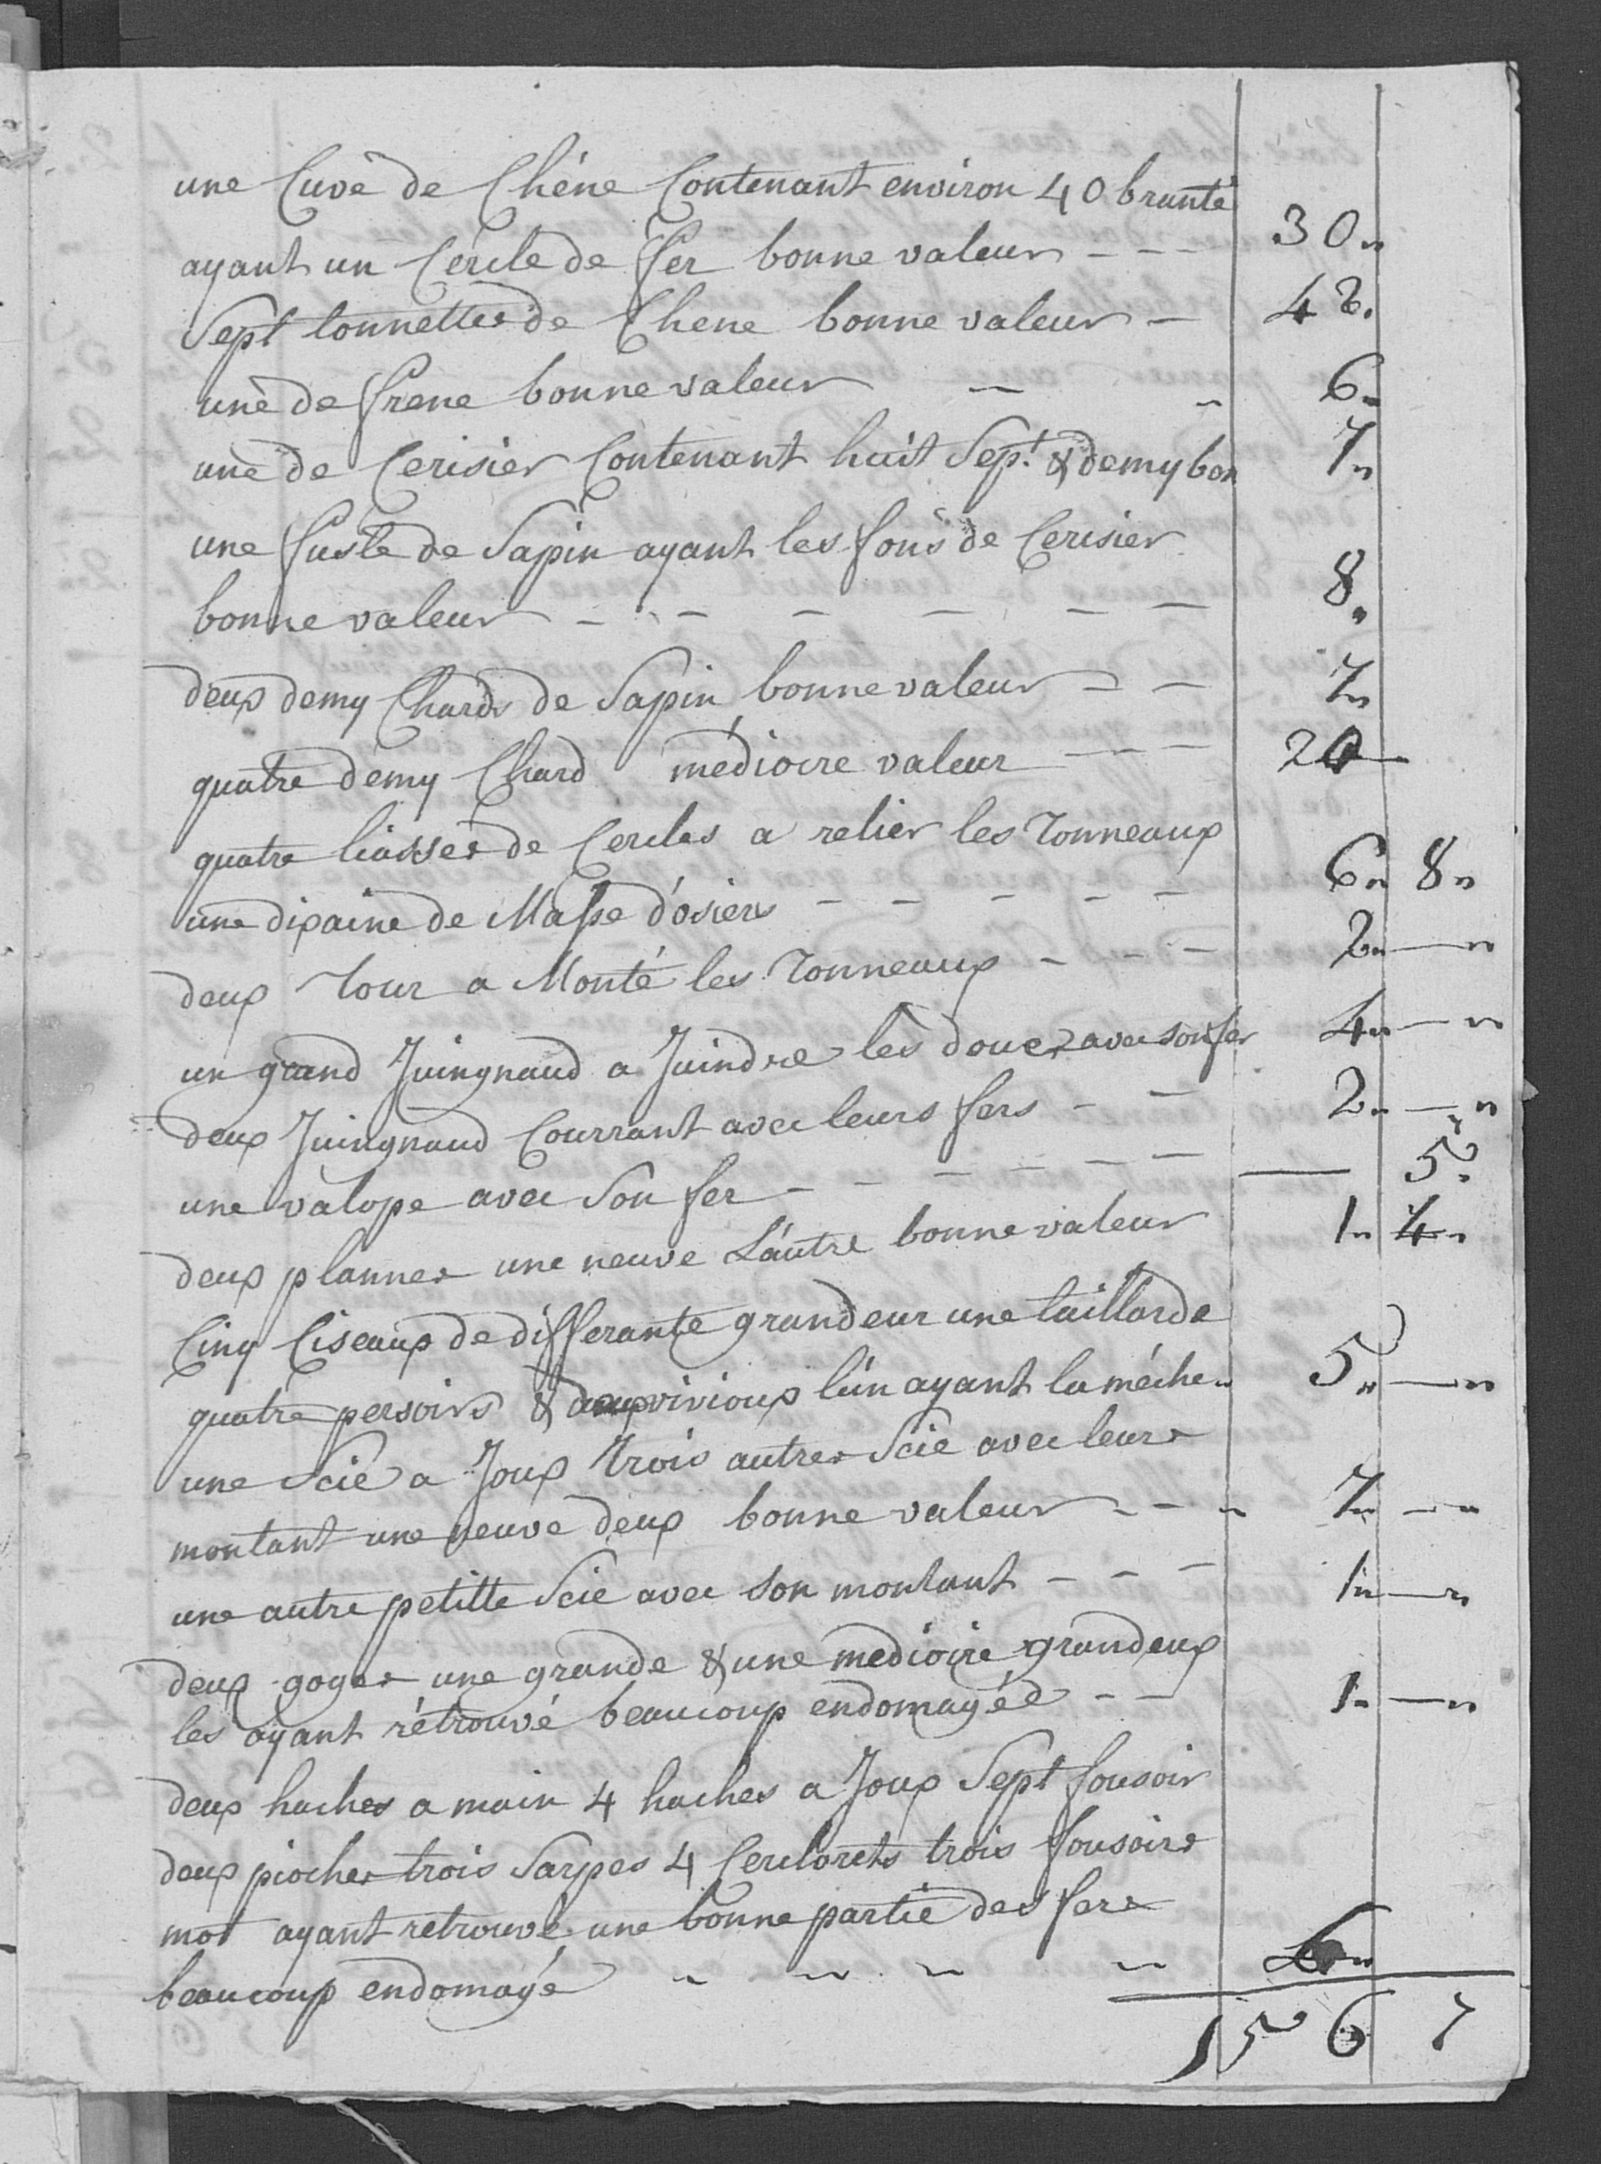 une Cuve de Chéne Contenant environ 40 brante
ayant un Cercle de fer bonne valeur - - - 30"
Sept tonnettes de Chene bonne valeur - 42.
une de frene bonne valeur - - 6"
une de Cerisier Contenant huit Sept. & demy bon 7"
une fuste de Sapin ayant les fons de Cerisier
bonne valeur - - - - - - - 8"
deux demy Chards de Sapin bonne valeur - - 7"
quatre demy Chard médiocre valeur - - 20
quatre liasses de Cercles a relier les Tonneaux
une dixaine de Masse d'osiers - - - - - 6" 8"
deux Tour a Monté les Tonneaux - - - 2" — "
un grand Juingnaud a Juindre les douez avec son fer 4" — "
deux Juingnaud Courrant avec leurs fers - - 2" — "
une valope avec Son fer - - - - - - — 5"
deux plannes une neuve L'autre bonne valeur 1" 4"
Cinq Ciseaux de differante grandeur une taillarde
quatre persoirs & deux virioux l'un ayant la méche 5" — "
une Scie a Joux trois autres Scie avec leurs
montant une neuve deux bonne valeur - - - 7" — "
une autre petitte Scie avec son montant - - - 1" — "
deux goges une grande & une mediocre grandeux
les ayant rétrouvé beaucoup endomagéé - - 1" — "
deux haches a main 4 haches a Joux Sept fousoir
deux pioches trois Sarpes 4 Cerclorets trois fousoirs
mot ayant retrouvé une bonne partie des fers
beaucoup endomagé - - - - 6"
156 7